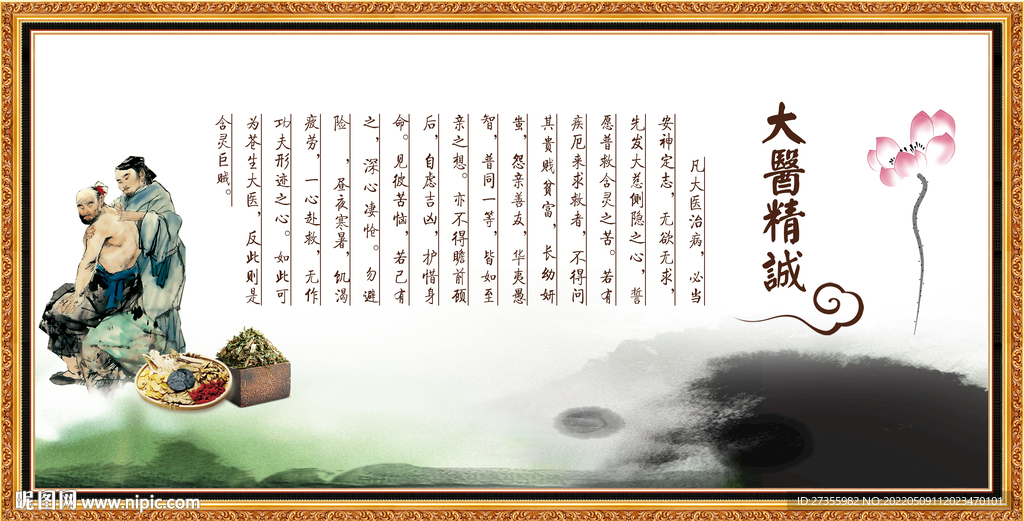 大醫精誠
凡大医治病，必当
安神定志，无欲无求，
先发大慈恻隐之心，誓
愿普救含灵之苦。若有
疾厄来求救者，不得问
其貴贱貧富，长幼妍
蚩，怨亲善友，华夷愚
智，普同一等，皆如至
亲之想。亦不得瞻前顾
后，自虑吉凶，护惜身
命。见彼苦恼，若己有
之，深心凄怆。勿避
险　，昼夜寒暑，饥渴
疲劳，一心赴救，无作
功夫形迹之心。如此可
为苍生大医，反此则是
含灵巨贼。
昵图网 www.nipic.com
ID:27355982 NO:20220509112023470101